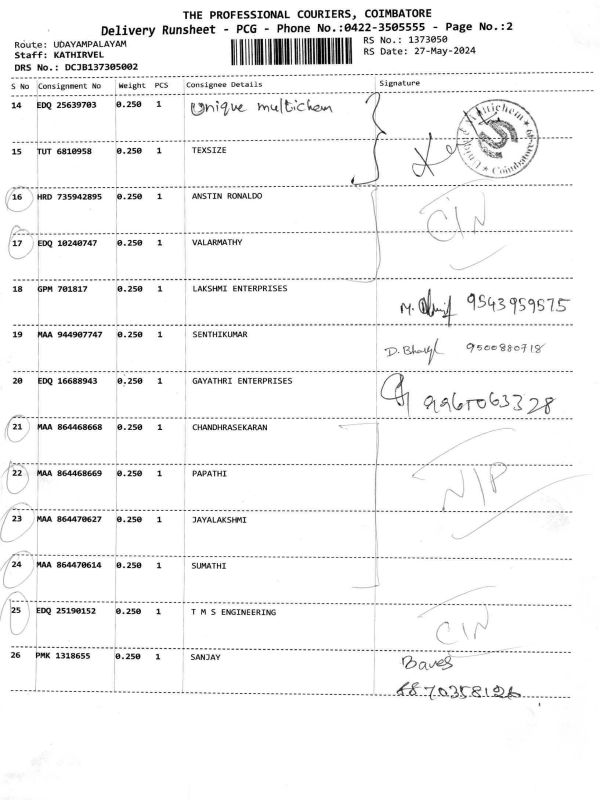 THE PROFESSIONAL COURIERS, COIMBATORE
Delivery Runsheet - PCG - Phone No.:0422-3505555 - Page No.:2
Route: UDAYAMPALAYAM RS No.: 1373050
Staff: KATHIRVEL RS Date: 27-May-2024
DRS No.: DCJB137305002
S No Consignment No Weight PCS Consignee Details Signature
14 EDQ 25639703 0.250 1 Unique multichem
15 TUT 6810958 0.250 1 TEXSIZE
16 HRD 735942895 0.250 1 ANSTIN RONALDO
CIN
17 EDQ 10240747 0.250 1 VALARMATHY
18 GPM 701817 0.250 1 LAKSHMI ENTERPRISES
M. 9543959575
19 MAA 944907747 0.250 1 SENTHIKUMAR
D. 9500880718
20 EDQ 16688943 0.250 1 GAYATHRI ENTERPRISES
21 MAA 864468668 0.250 1 CHANDHRASEKARAN
22 MAA 864468669 0.250 1 PAPATHI
N/P
23 MAA 864470627 0.250 1 JAYALAKSHMI
24 MAA 864470614 0.250 1 SUMATHI
25 EDQ 25190152 0.250 1 T M S ENGINEERING
CIN
26 PMK 1318655 0.250 1 SANJAY